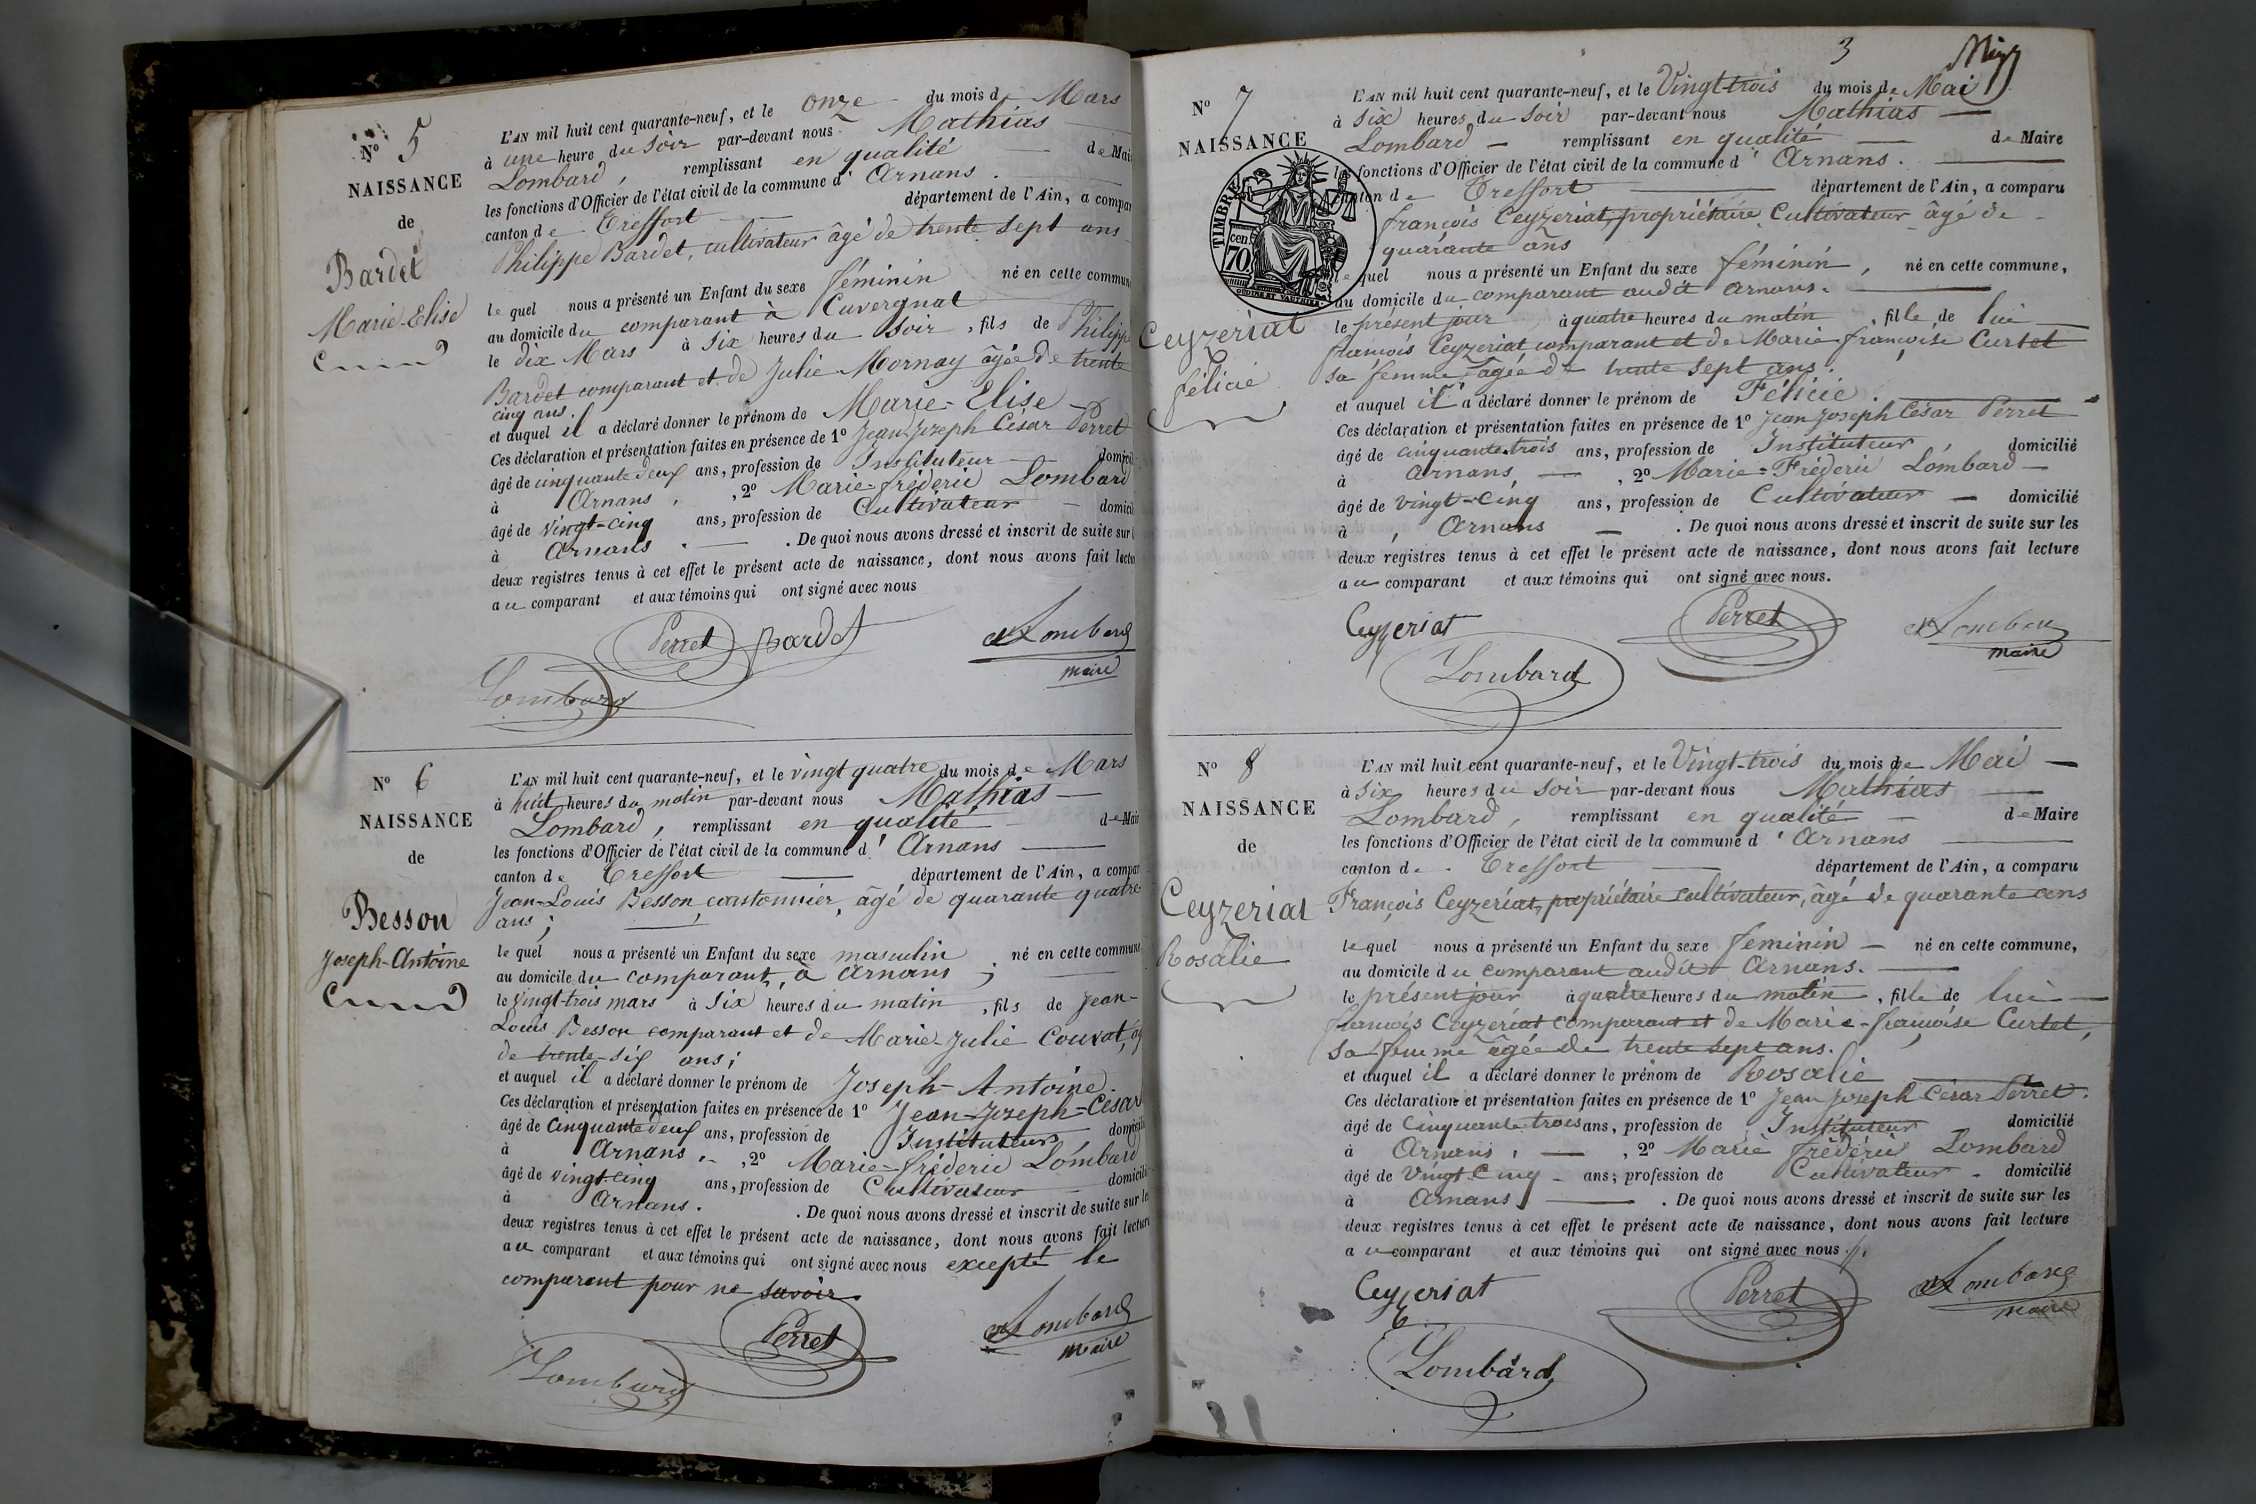 N° 5
NAISSANCE
de
Bardet
Marie-Elise
L'AN mil huit cent quarante-neuf, et le onze du mois de Mars
à une heure du soir par-devant nous Mathias
Lombard, remplissant en qualité de Mai
les fonctions d'Officier de l'état civil de la commune d'Arnans.
canton de Treffort département de l'Ain, a compar
Philippe Bardet, cultivateur âgé de trente sept ans
lequel nous a présenté un Enfant du sexe féminin né en cette commun
au domicile du comparant à Cuvergnat
le dix Mars à six heures du soir, fils de Philipp
Bardet comparant et de Julie Mornay âgée de trente
cinq ans.
et auquel il a déclaré donner le prénom de Marie-Elise
Ces déclaration et présentation faites en présence de 1° Jean-Joseph César Perret
âgé de cinquante deux ans, profession de Instituteur domicil
à Arnans, 2° Marie-fréderic Lombard
âgé de vingt-cinq ans, profession de Cultivateur domicil
à Arnans. De quoi nous avons dressé et inscrit de suite sur l
deux registres tenus à cet effet le présent acte de naissance, dont nous avons fait lectu
au comparant et aux témoins qui ont signé avec nous
Perret Bardet Lombard
maire
Lombard
N° 6
NAISSANCE
de
Besson
Joseph-Antoine
L'AN mil huit cent quarante-neuf, et le vingt quatre du mois de Mars
à huit heures du matin par-devant nous Mathias
Lombard, remplissant en qualité de Mair
les fonctions d'Officier de l'état civil de la commune d'Arnans
canton de Treffort département de l'Ain, a compar
Jean-Louis Besson, cantonnier, âgé de quarante quatre
ans;
lequel nous a présenté un Enfant du sexe masculin né en cette commune
au domicile du comparant, à Arnans;
le vingt-trois mars à six heures du matin, fils de Jean-
Louis Besson comparant et de Marie-Julie Couvat, âg
de trente-six ans;
et auquel il a déclaré donner le prénom de Joseph-Antoine.
Ces déclaration et présentation faites en présence de 1° Jean-Joseph-César
âgé de cinquante deux ans, profession de Instituteur, domicilié
à Arnans, 2° Marie-fréderic Lombard
âgé de vingt-cinq ans, profession de Cultivateur domicilié
à Arnans. De quoi nous avons dressé et inscrit de suite sur le
deux registres tenus à cet effet le présent acte de naissance, dont nous avons fait lecture
au comparant et aux témoins qui ont signé avec nous excepté le
comparant pour ne savoir.
Perret Lombard
maire
Lombard
3
N° 7
NAISSANCE
TIMBRE
70 cen
OUDINE ET VAUTHIER
Ceyzeriat
félicie
L'AN mil huit cent quarante-neuf, et le Vingt-trois du mois de Mai
à six heures du soir par-devant nous Mathias
Lombard remplissant en qualité de Maire
les fonctions d'Officier de l'état civil de la commune d'Arnans.
canton de Treffort département de l'Ain, a comparu
françois Ceyzeriat, propriétaire Cultivateur âgé de
quarante ans
lequel nous a présenté un Enfant du sexe féminin, né en cette commune,
au domicile du comparant audit Arnans.
le présent jour à quatre heures du matin, fille de lui
françois Ceyzeriat comparant et de Marie-françoise Curtet
sa femme, âgée de trente sept ans.
et auquel il a déclaré donner le prénom de Félicie.
Ces déclaration et présentation faites en présence de 1° Jean Joseph César Perret
âgé de cinquante trois ans, profession de Instituteur, domicilié
à Arnans, 2° Marie-Fréderic Lombard
âgé de vingt-cinq ans, profession de Cultivateur domicilié
à Arnans. De quoi nous avons dressé et inscrit de suite sur les
deux registres tenus à cet effet le présent acte de naissance, dont nous avons fait lecture
au comparant et aux témoins qui ont signé avec nous.
Ceyzeriat Perret Lombard
maire
Lombard
N° 8
NAISSANCE
de
Ceyzeriat
Rosalie
L'AN mil huit cent quarante-neuf, et le Vingt-trois du mois de Mai
à six heures du soir par-devant nous Mathias
Lombard, remplissant en qualité de Maire
les fonctions d'Officier de l'état civil de la commune d'Arnans
canton de Treffort département de l'Ain, a comparu
François Ceyzeriat, propriétaire cultivateur, âgé de quarante ans
lequel nous a présenté un Enfant du sexe féminin né en cette commune,
au domicile du comparant audit Arnans.
le présent jour à quatre heures du matin, fille de lui
françois Ceyzeriat comparant et de Marie-françoise Curtet,
sa femme âgée de trente sept ans.
et auquel il a déclaré donner le prénom de Rosalie
Ces déclaration et présentation faites en présence de 1° Jean Joseph César Perret.
âgé de Cinquante trois ans, profession de Instituteur domicilié
à Arnans, 2° Marie fréderic Lombard
âgé de Vingt Cinq ans; profession de Cultivateur domicilié
à Arnans. De quoi nous avons dressé et inscrit de suite sur les
deux registres tenus à cet effet le présent acte de naissance, dont nous avons fait lecture
au comparant et aux témoins qui ont signé avec nous.
Ceyzeriat Perret Lombard
maire
Lombard